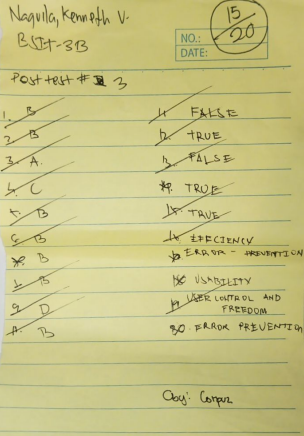 Naquila, Kenneth V.
BSIT-3B
15
20
NO.:
DATE:
Post test # 3
1. B
2. B
3. A.
4. C
5. B
6. B
7. B
8. B
9. D
10. B
11. FALSE
12. TRUE
13. FALSE
14. TRUE
15. TRUE
16. EFFICIENCY
17. ERROR - PREVENTION
18. USABILITY
19. USER CONTROL AND
FREEDOM
20. ERROR PREVENTION